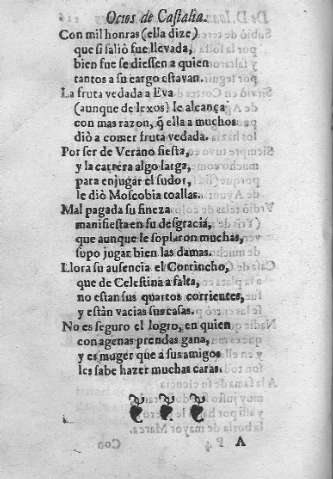 Ocios de Castalia.
Con mil honras (ella dize)
que si saliò fue llevada,
bien fue se diessen a quien
tantos a su cargo estavan.
La fruta vedada a Eva
(aunque de lexos) le alcança
con mas razon, q̃ ella a muchos
diò a comer fruta vedada.
Por ser de Verano siesta,
y la carrera algo larga,
para enjugar el sudor,
le diò Moscobia toallas.
Mal pagada su fineza
manifiesta en su desgracia,
que aunque le soplaron muchas,
supo jugar bien las damas.
Llora su ausencia el Corrincho,
que de Celestina a falta,
no estan sus quartos corrientes,
y estàn vacias sus casas.
No es seguro el logro, en quien
con agenas prendas gana,
y es muger que a sus amigos
les sabe hazer muchas caras.
A